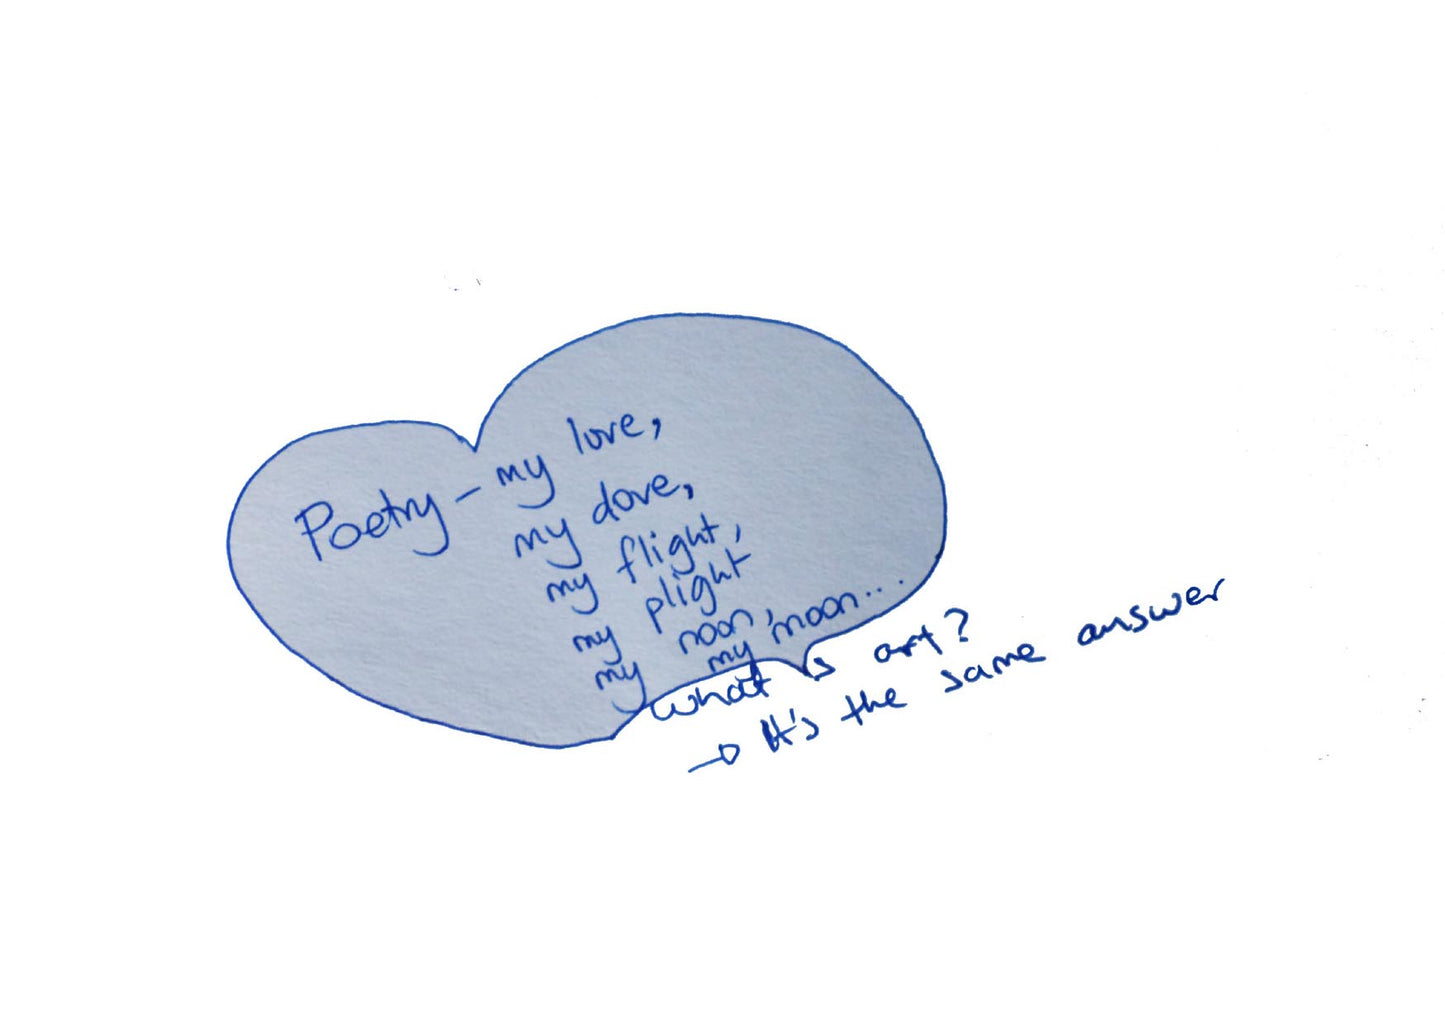 Poetry – my love,
my dove,
my flight,
my plight
my noon,
my moon...
What is art?
→ It's the same answer